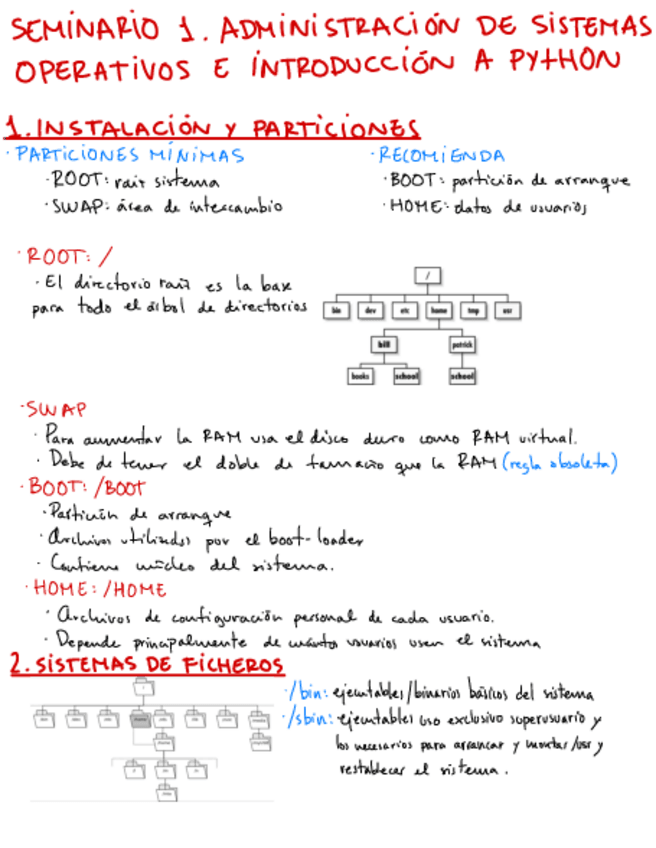 SEMINARIO 1. ADMINISTRACIÓN DE SISTEMAS
OPERATIVOS E INTRODUCCIÓN A PYTHON
1. INSTALACIÓN Y PARTICIONES
· PARTICIONES MÍNIMAS
· ROOT: raíz sistema
· SWAP: área de intercambio
· RECOMIENDA
· BOOT: partición de arranque
· HOME: datos de usuarios
· ROOT: /
· El directorio raíz es la base
para todo el árbol de directorios
/
bin dev etc home tmp usr
bill patrick
books school school
· SWAP
· Para aumentar la RAM usa el disco duro como RAM virtual.
· Debe de tener el doble de tamaño que la RAM (regla obsoleta)
· BOOT: /BOOT
· Partición de arranque
· Archivos utilizados por el boot-loader
· Contiene núcleo del sistema.
· HOME: /HOME
· Archivos de configuración personal de cada usuario.
· Depende principalmente de cuántos usuarios usen el sistema
2. SISTEMAS DE FICHEROS
· /bin: ejecutables/binarios básicos del sistema
· /sbin: ejecutables uso exclusivo superusuario y
los necesarios para arrancar y montar /usr y
restablecer el sistema.